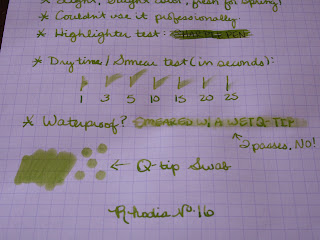 * Light, bright color, fresh for Spring!
* Couldn't use it professionally.
* Highlighter test:
* Drytime/Smear test (in seconds):
1 3 5 10 15 20 25
* Waterproof? SMEARED W/ A WET Q-TIP
2 passes. No!
← Q-tip Swab
Rhodia No. 16